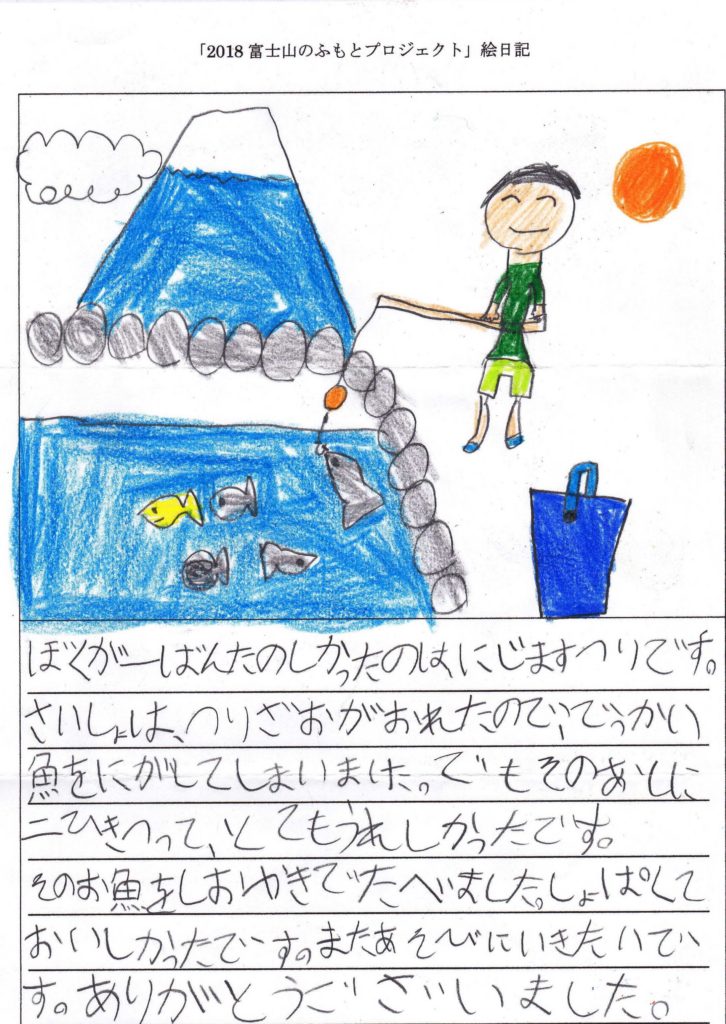 「2018 富士山のふもとプロジェクト」絵日記
ぼくが一ばんたのしかったのは、にじますつりです。
さいしょは、つりざおがおれたので、でっかい
魚をにがしてしまいました。でもそのあとに
二ひきつって、とてもうれしかったです。
そのお魚をしおやきでたべました。しょぱくて
おいしかったです。またあそびにいきたいで
す。ありがとうございました。